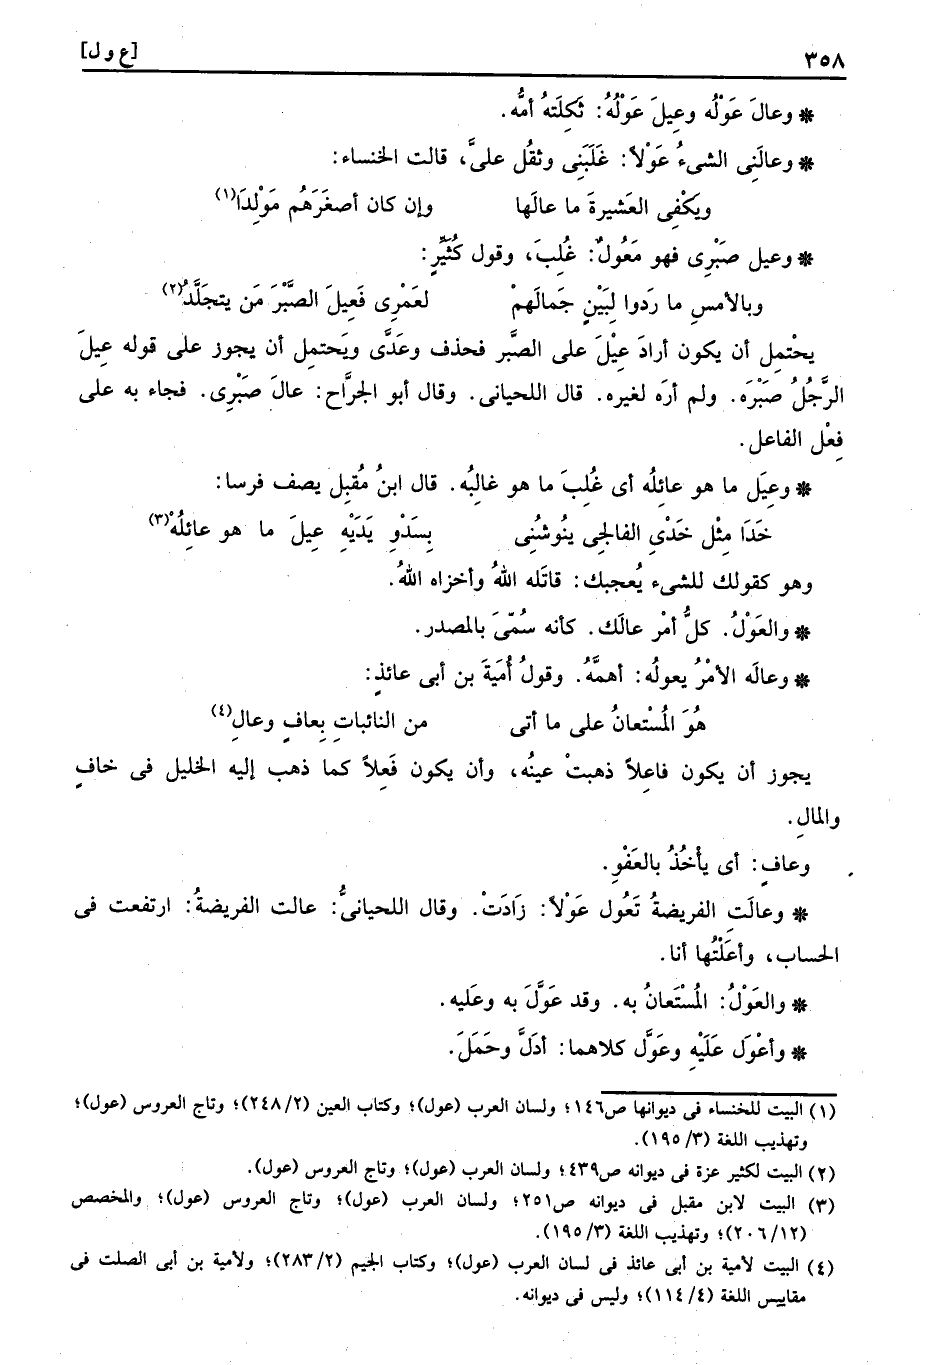 ٣٥٨ [ع و ل]
* وعالَ عَوْلُه وعِيلَ عَوْلُهُ: ثَكِلَتهُ أمُّه.
* وعالَنِى الشىءُ عَوْلاً: غَلَبَنِى وثقُل علىَّ، قالت الخنساء:
ويَكْفِى العَشيرةَ ما عالَها وإن كان أصغرَهُم مَوْلِدَا(١)
* وعيل صَبْرِى فهو مَعُولٌ: غُلِبَ، وقول كُثَيِّرٍ:
وبالأمسِ ما رَدوا لِبَيْنٍ جَمالَهمْ لعَمْرِى فَعِيلَ الصَّبْرَ مَن يتجلَّدُ(٢)
يحْتمِل أن يكون أرادَ عِيْلَ على الصبَّر فحذف وعَدَّى ويَحتمِل أن يجوز على قوله عيلَ
الرَّجُلُ صَبْرَه. ولم أرَه لغيره. قال اللحيانى. وقال أبو الجرَّاح: عالَ صَبْرِى. فجاء به على
فِعْل الفاعل.
* وعِيَل ما هو عائِلُه أى غُلِبَ ما هو غالبُه. قال ابنُ مُقبِل يصف فرسا:
خَدَا مِثْل خَدْىِ الفالجِى ينُوشنُنِى بِسَدْوِ يَدَيْهِ عِيلَ ما هو عائلُهْ(٣)
وهو كقولك للشىء يُعجبك: قاتَله اللهُ وأخزاه اللهُ.
* والعَوْلُ. كلُّ أمْر عالَك. كأنه سُمِّىَ بالمصدر.
* وعالَه الأمْرُ يعولُه: أهمَّهُ. وقولُ أُمَيةَ بن أبى عائذٍ:
هُوَ المُسْتعانُ على ما أتى من النائباتِ بِعافٍ وعالِ(٤)
يجوز أن يكون فاعِلاً ذهبتْ عينُه، وأن يكون فَعِلاً كما ذهب إليه الخليل فى خافٍ
والمالِ.
وعافٍ: أى يأخُذُ بالعَفْوِ.
* وعالَتِ الفريضةُ تَعُول عَوْلاً: زَادَتْ. وقال اللحيانىُّ: عالت الفريضةُ: ارتفعت فى
الحساب، وأعَلْتُها أنا.
* والعَوْلُ: المُسْتَعانُ به. وقد عَوَّلَ به وعَليه.
* وأعْوَل عَلَيْهِ وعَوَّل كلاهما: أدَلَّ وحَمَلَ.
(١) البيت للخنساء فى ديوانها ص١٤٦؛ ولسان العرب (عول)؛ وكتاب العين (٢٤٨/٢)؛ وتاج العروس (عول)؛
وتهذيب اللغة (١٩٥/٣).
(٢) البيت لكثير عزة فى ديوانه ص٤٣٩؛ ولسان العرب (عول)؛ وتاج العروس (عول).
(٣) البيت لابن مقبل فى ديوانه ص٢٥١؛ ولسان العرب (عول)؛ وتاج العروس (عول)؛ والمخصص
(٢٠٦/١٢)؛ وتهذيب اللغة (١٩٥/٣).
(٤) البيت لأمية بن أبى عائذ فى لسان العرب (عول)؛ وكتاب الجيم (٢٨٣/٢)؛ ولأمية بن أبى الصلت فى
مقاييس اللغة (١١٤/٤)؛ وليس فى ديوانه.